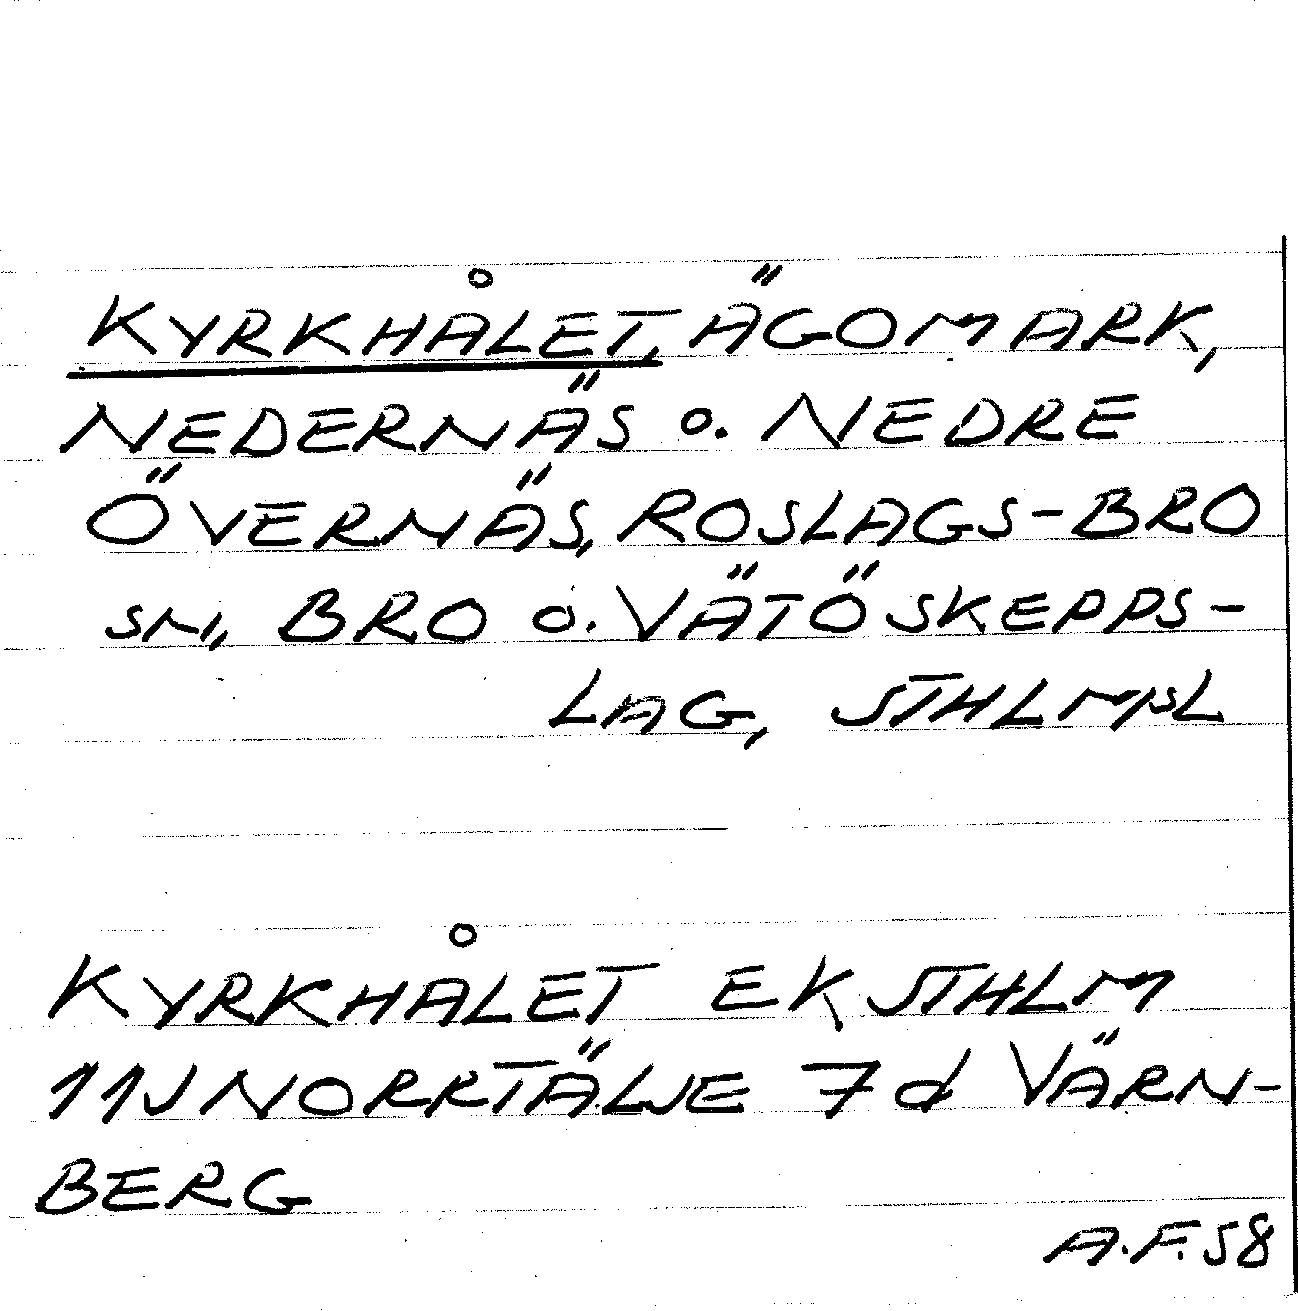 KYRKHÅLET, ÄGOMARK,
NEDERNÄS o. NEDRE
ÖVERNÄS, ROSLAGS-BRO
SN, BRO o. VÄTÖ SKEPPS-
LAG, STHLMSL
KYRKHÅLET EK STHLM
11J NORRTÄLJE 7d VÄRN-
BERG
A.F. 58